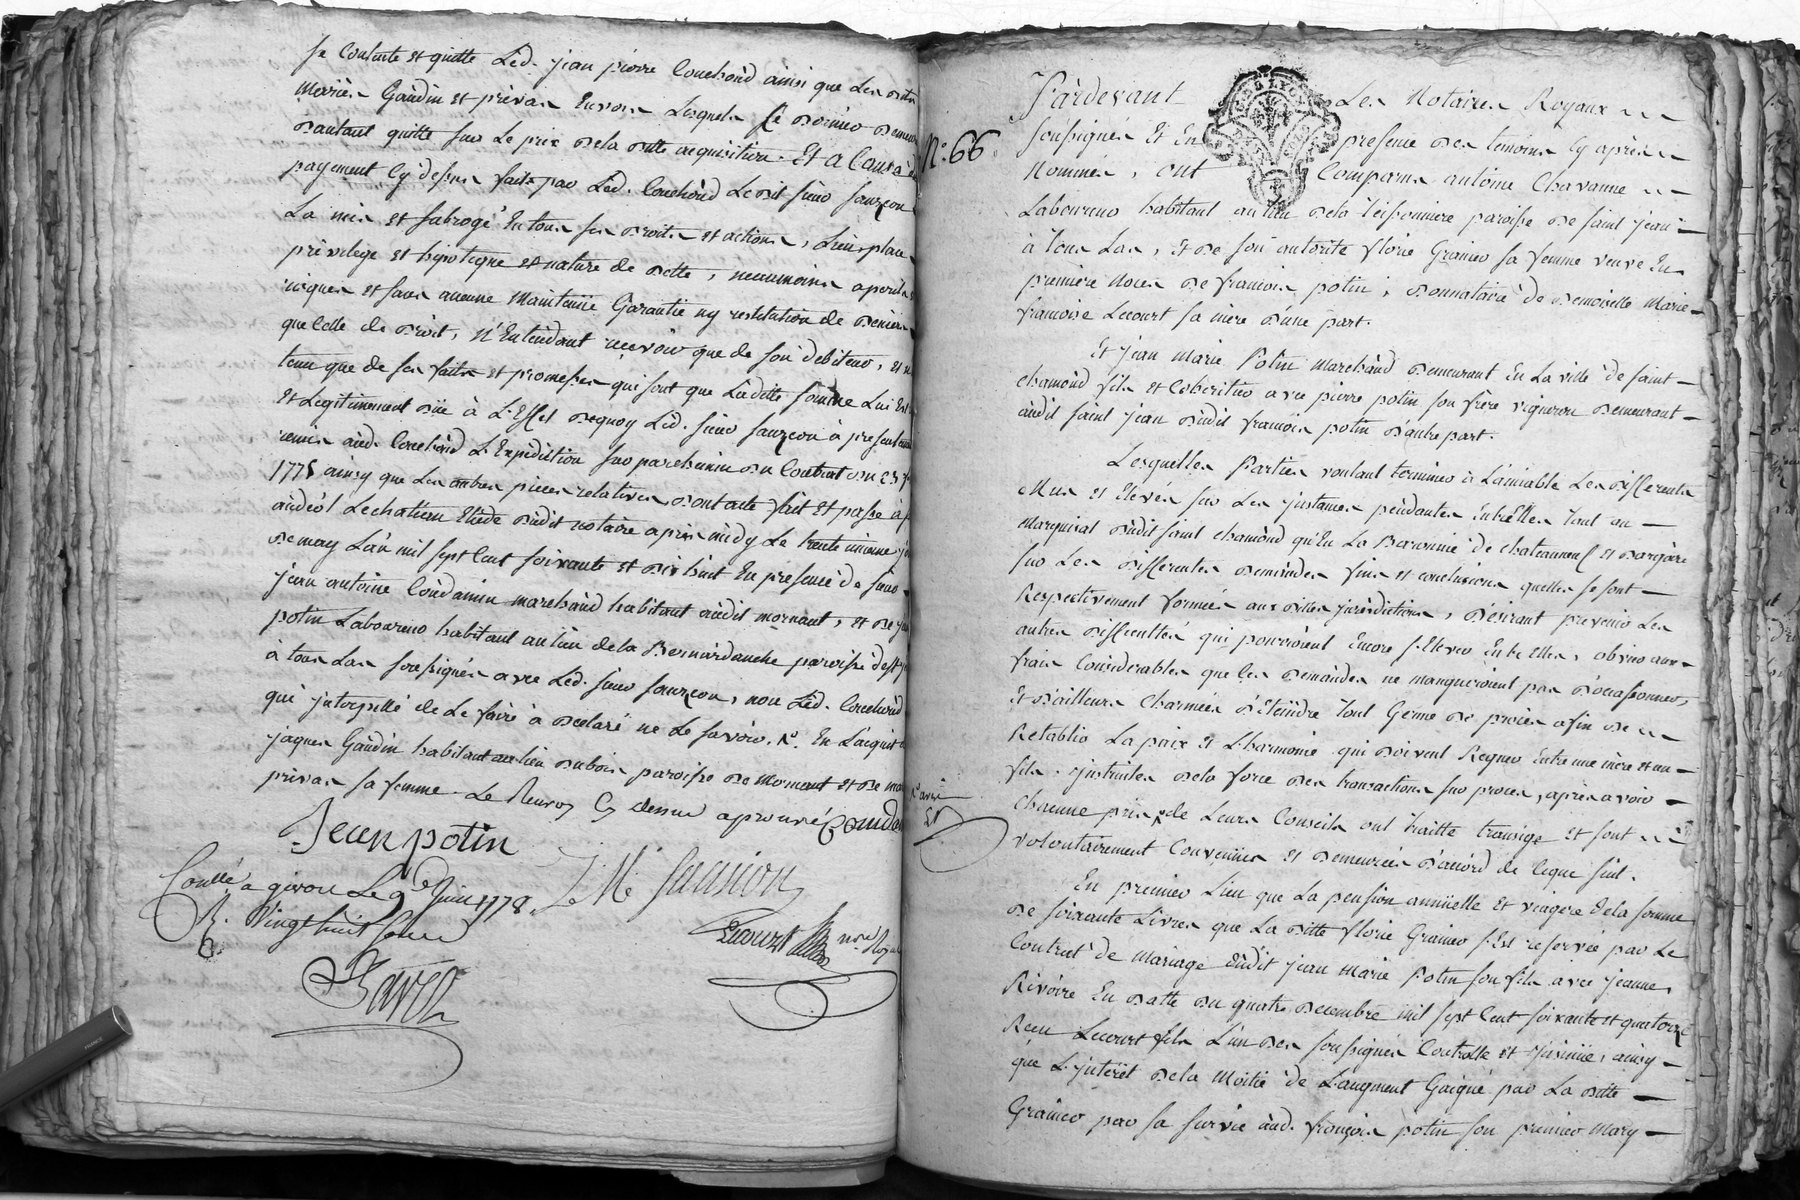 se contente et quitte Led. jean pierre Couchoud ainsi que Les dits
Mariés Gaudin et privas Envers Lesquels Ce dernier demeure
dautant quitte sur Le prix dela ditte acquisition. Et a Cause du
payement cy dessus fait par Led. Couchoud Ledit sieur sauzeon
La mis et subrogé En tous ses droits et actions, Lieu, place
privilege et hipoteque et nature de dette, neanmoins a perils
risques et sans aucune Maintenüe Garantie ny restitution de deniers
que Celle de droit, N'Entendant recevoir que de son debiteur, et
tenu que de ses faits et promesses qui sont que Ladite somme Lui Est
Et Legitimement düe à L'Effet dequoy Led. sieur sauzeon à presentement
remis aud. Couchoud L'Expedition sur parchemin du Contrat du 23
1775 ainsy que Les autres pieces relatives dont acte fait et passé à
andéol Lechateau Etude dudit notaire après midy Le trente unieme
de may L'an mil sept Cent soixante et dix huit En presence de sieur
jean antoine Condamin marchand habitant audit mornant, et de
potin Laboureur habitant au lieu de la Bernardanche paroisse de st
à tous Las soussignés avec Led. sieur sauzeon, non Led. Couchoud
qui interpellé de Le faire à declaré ne Le savoir. En Lacquit
jaques Gaudin habitant au lieu dubois paroisse de Mornant et de
privas sa femme. Le Renvoy Cy dessus approuvé Condam
Jean potin
Conllé a givors Le 9e Juin 1778.
R. Vingt huit sous
Lecourt nore Royal
N°. 66
Pardevant Les Notaires Royaux
soussignés Et En presence des temoins Cy après
Nommés, ont Comparus antoine Chavanne
Laboureur habitant au lieu dela Teissonniere paroisse de saint jean
à Tous Las, et de son autorité florie Granier sa femme veuve En
premiere Noces de francois potin, donnataire de demoiselle Marie
francoise Lecourt sa mere d'une part.
Et jean Marie Potin Marchand demeurant En La ville de saint
chamond fils et Coheritier avec pierre potin son frère vigneron demeurant
audit saint jean dudit francois potin d'autre part.
Lesquelles Parties voulant terminer à L'amiable Les differents
Mus et Elevés sur Les jnstances pendantes Entr'Elles Tout au
Marquisat dudit saint chamond qu'En La Baronnie de chateauneuf et dargoire
sur Les differentes demandes fins et conclusions quelles se sont
Respectivement formées aux dittes jurisdictions, desirant prevenir Les
autres difficultés qui pourroient Encore s'Elever Entr'Elles, obvier aux
frais Considerables que Ces demandes ne manqueroient pas d'occasionner,
Et d'ailleurs Charmées d'éteindre Tout Germe de procès afin de
Retablir La paix et L'harmonie qui doivent Regner Entre une mère et un
fils. jnstruites dela force des transactions sur procès, après avoir
chacune pris de Leurs Conseils ont traitté transigé et sont
volontairement Convenües et demeurées d'accord de Ceque suit.
En premier Lieu que La pension annüelle et viagere dela somme
de soixante Livres que La ditte florie Granier s'Est reservée par Le
Contrat de mariage dudit jean Marie Potin son fils avec jeanne
Rivoire En datte du quatre decembre mil sept Cent soixante et quatorze
Recu Lecourt fils L'un des soussignés Controllé et jnsinüé, ainsy
que L'jnterêt dela Moitié de L'augment Gaigné par La ditte
Granier par sa survie aud. françois potin son premier Mary